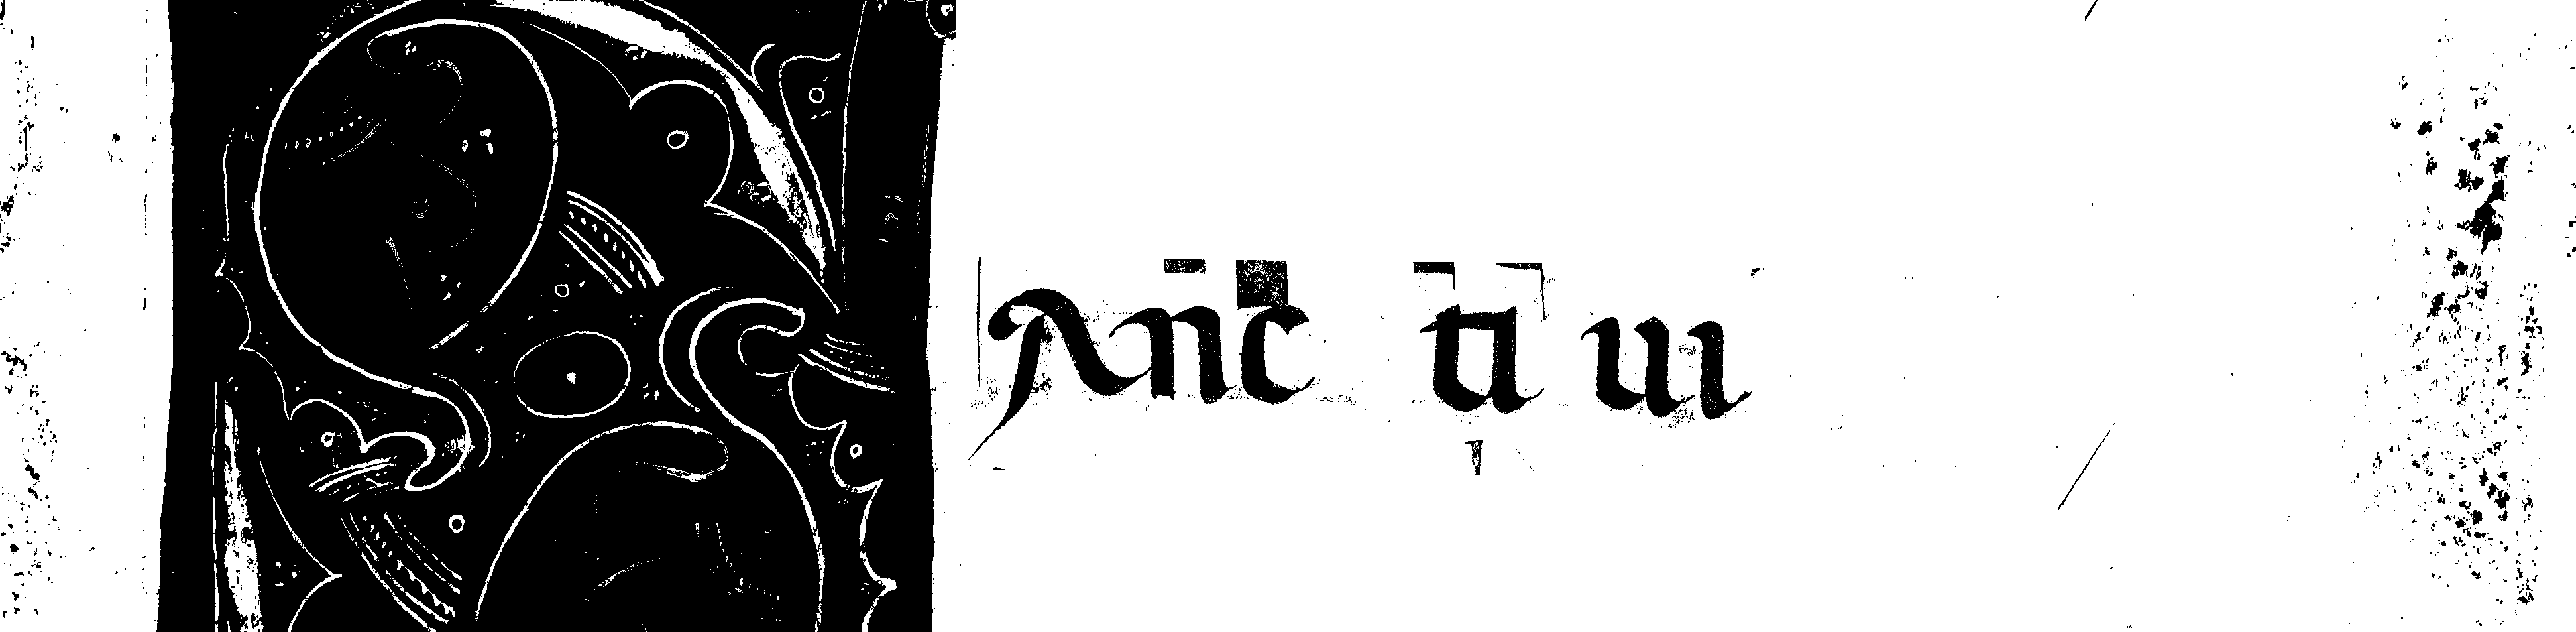 Anc ti ui